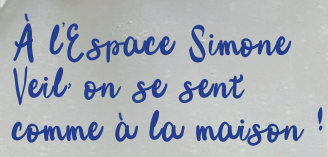 À l'Espace Simone
Veil, on se sent
comme à la maison !